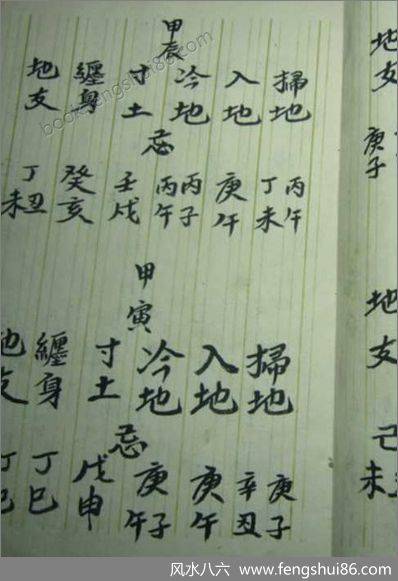 地支
庚子
地支
己未
甲辰
掃地
入地
冷地
寸土
纏身
地支
忌
丙午
丁未
庚午
丙子
丙午
壬戌
癸亥
丁丑未
甲寅
掃地
入地
冷地
寸土
纏身
地支
忌
庚子
辛丑
庚午
庚子午
戊申
丁巳
丁巳
book.fengshui86.com
风水八六 www.fengshui86.com